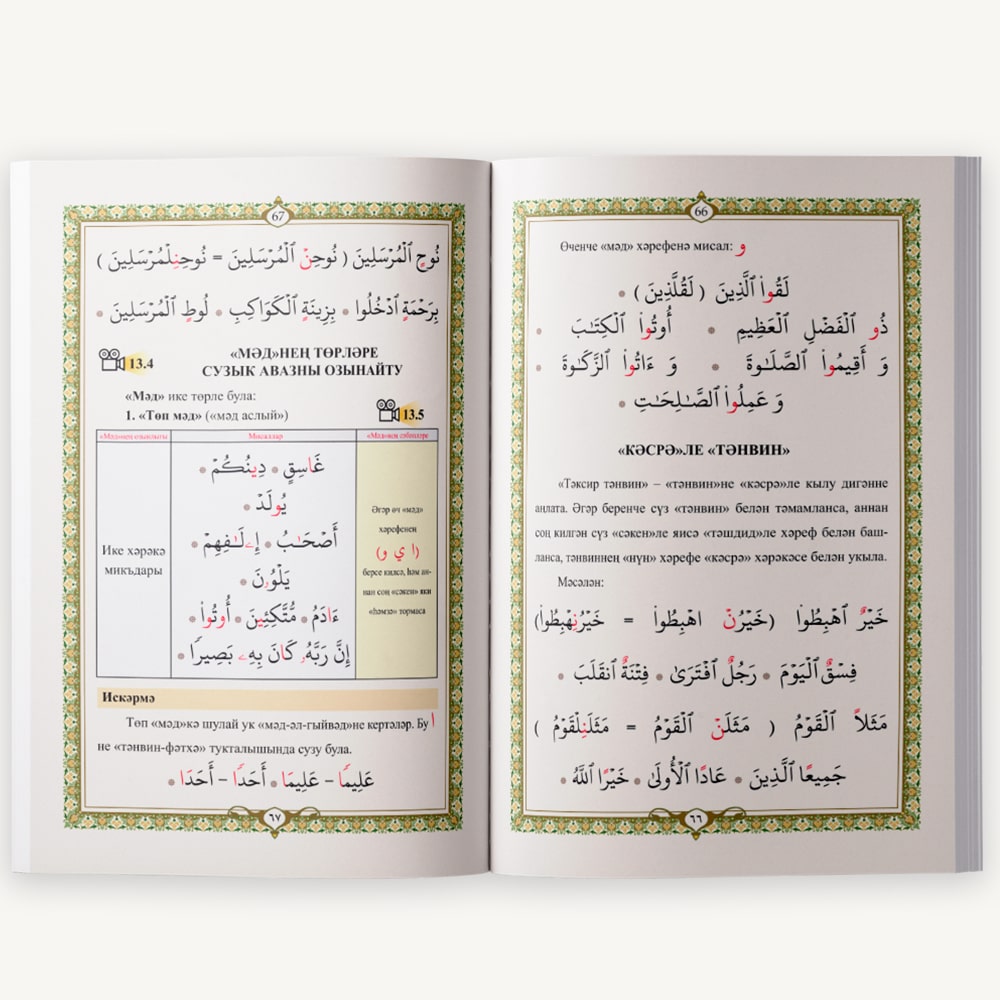 66
Өченче «мәд» хәрефенә мисал: و
لَقُوا۟ ٱلَّذِينَ ( لَقُلَّذِينَ ) •
ذُو ٱلْفَضْلِ ٱلْعَظِيمِ • أُوتُوا۟ ٱلْكِتَـٰبَ •
وَ أَقِيمُوا۟ ٱلصَّلَـٰوةَ • وَ ءَاتُوا۟ ٱلزَّكَـٰوةَ •
وَ عَمِلُوا۟ ٱلصَّـٰلِحَـٰتِ •
«КӘСРӘ»ЛЕ «ТӘНВИН»
«Тәксир тәнвин» – «тәнвин»не «кәсрә»ле кылу дигәнне
аңлата. Әгәр беренче сүз «тәнвин» белән тәмамланса, аннан
соң килгән сүз «сәкен»ле яисә «тәшдид»ле хәреф белән баш-
ланса, тәнвиннең «нүн» хәрефе «кәсрә» хәрәкәсе белән укыла.
Мәсәлән:
خَيْرٌ ٱهْبِطُوا۟ (خَيْرُنْ اهْبِطُوا۟ = خَيْرُنِهْبِطُوا۟)
فِسْقٌ ٱلْيَوْمَ • رَجُلٌ ٱفْتَرَىٰ • فِتْنَةٌ ٱنقَلَبَ •
مَثَلاً ٱلْقَوْمُ ( مَثَلَنْ ٱلْقَوْمُ = مَثَلَنِلْقَوْمُ )
جَمِيعًا ٱلَّذِينَ • عَادًا ٱلْأُولَىٰ • خَيْرًا ٱللَّهُ •
٦٦
67
نُوحٍ ٱلْمُرْسَلِينَ ( نُوحِنْ ٱلْمُرْسَلِينَ = نُوحِنِلْمُرْسَلِينَ )
بِرَحْمَةٍ ٱدْخُلُوا • بِزِينَةٍ ٱلْكَوَاكِبِ • لُوطٍ ٱلْمُرْسَلِينَ •
13.4
«МӘД»НЕҢ ТӨРЛӘРЕ
СУЗЫК АВАЗНЫ ОЗЫНАЙТУ
«Мәд» ике төрле була:
1. «Төп мәд» («мәд аслый») 13.5
«Мәд»нең озынлыгы Мисаллар «Мәд»нең сәбәпләре
Ике хәрәкә
микъдары
غَاسِقٍ • دِينُكُمْ •
يُولَدْ •
أَصْحَـٰبُ • إِۦلَـٰفِهِمْ •
يَلْوُۥنَ •
ءَادَمُ • مُّتَّكِئِينَ • أُوتُوا۟ •
إِنَّ رَبَّهُۥ كَانَ بِهِۦ بَصِيرًا •
Әгәр өч «мәд»
хәрефенең
(ا ي و)
берсе килсә, һәм ан-
нан соң «сәкен» яки
«һәмзә» тормаса
Искәрмә
Төп «мәд»кә шулай ук «мәд-әл-гыйвәд»не кертәләр. Бу ا
не «тәнвин-фәтхә» тукталышында сузу була.
عَلِيمًا – عَلِيمَا • أَحَدًا – أَحَدَا •
٦٧